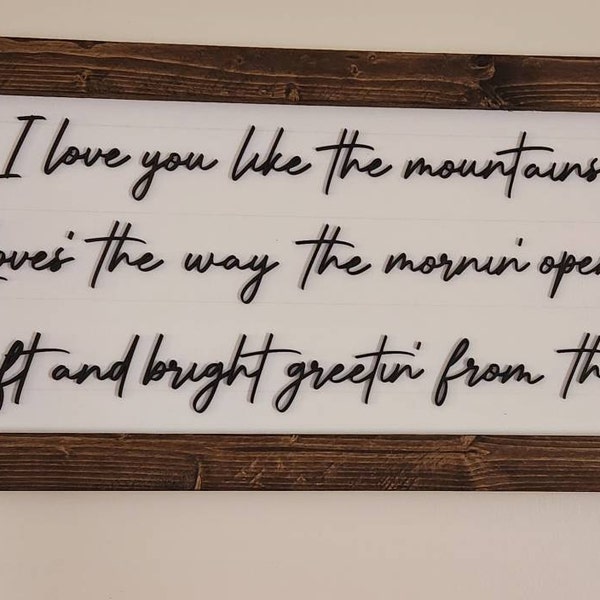 I love you like the mountains
oves' the way the mornin' open
ft and bright greetin' from th